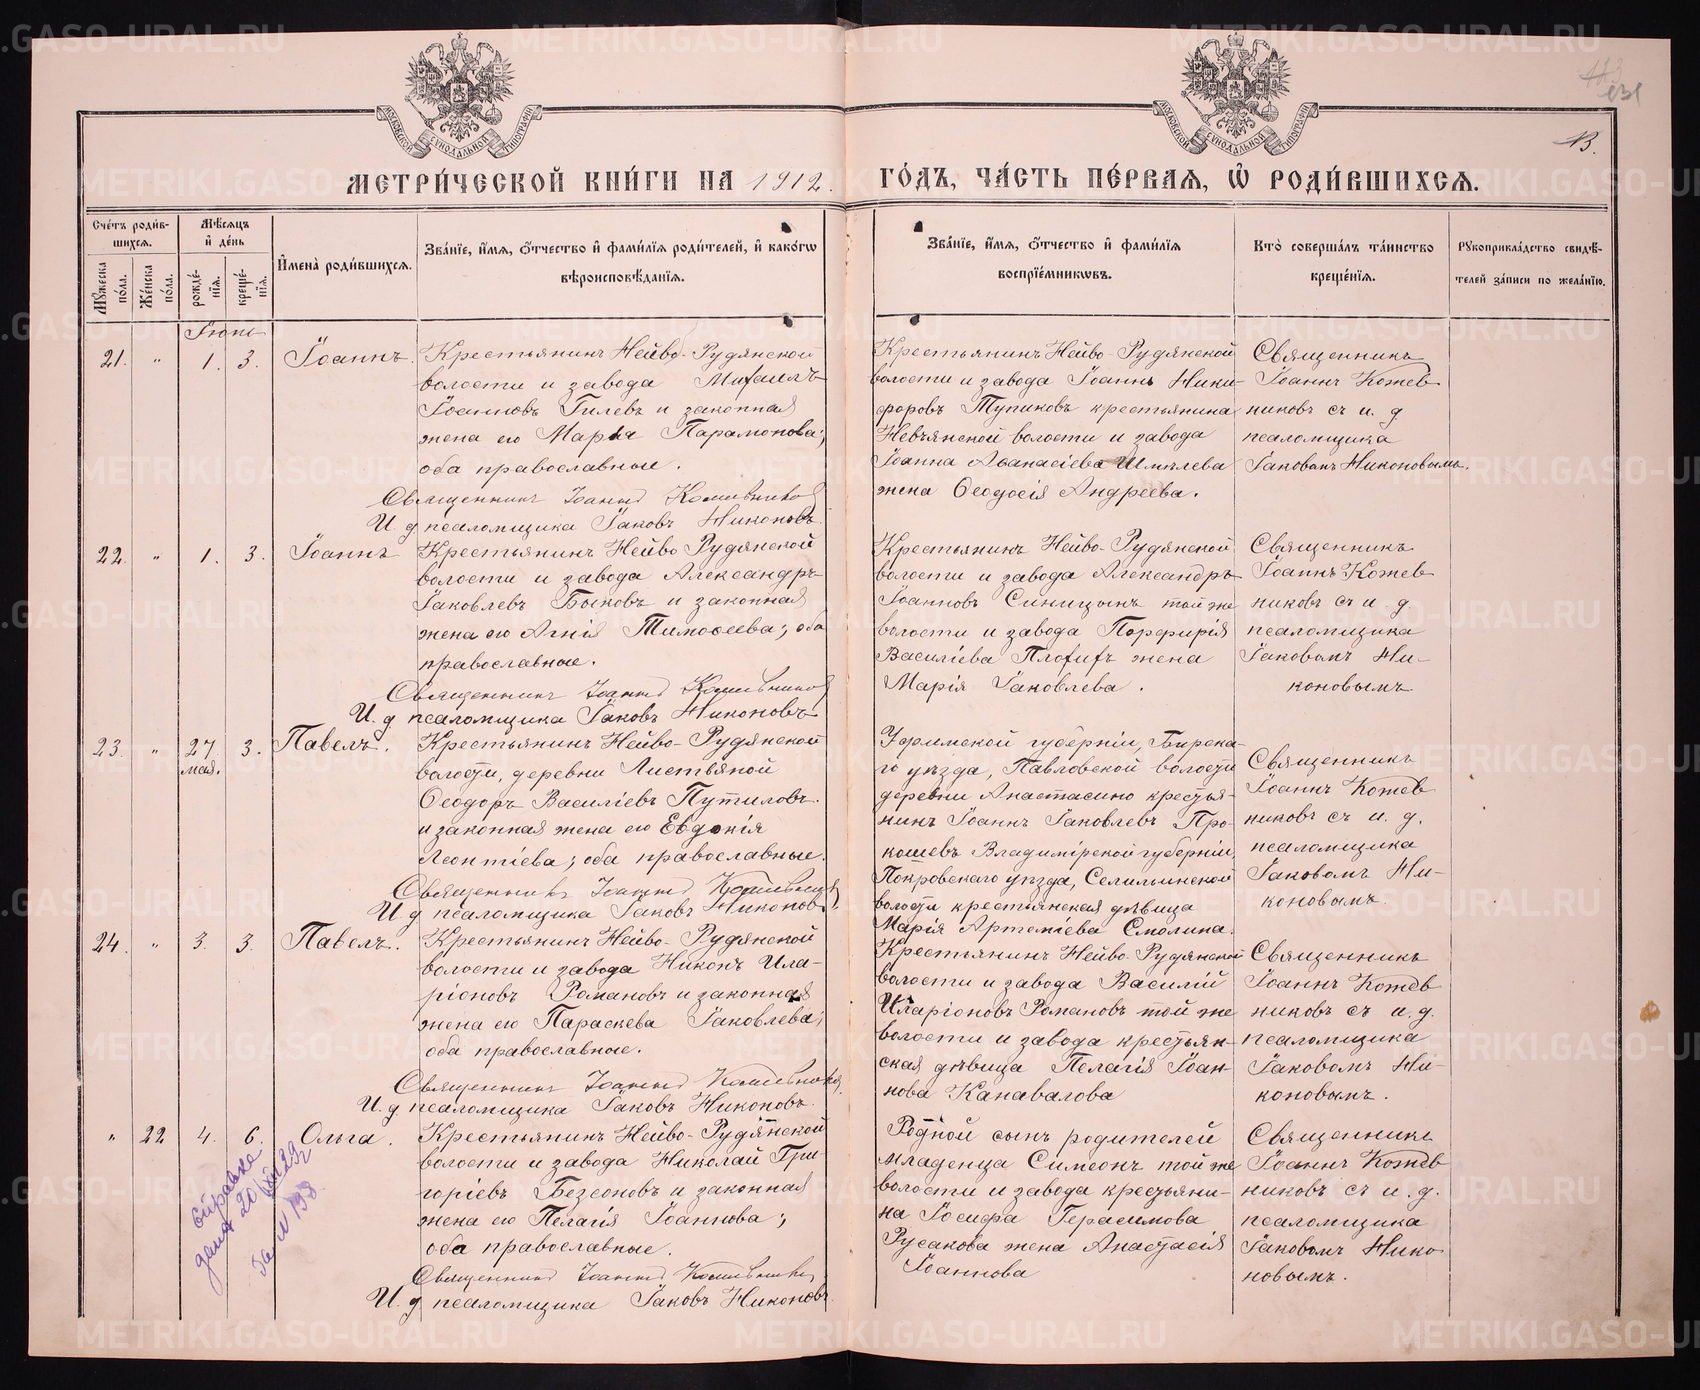 МЕТРИ́ЧЕСКОЙ КНИ́ГИ НА 1912.
ГО́ДЪ, ЧА́СТЬ ПЕ́РВАЯ, Ѽ РОДИ́ВШИХСЯ.
13.
МОСКОВСКОЙ СѴНОДАЛЬНОЙ ТИПОГРАФІИ
МОСКОВСКОЙ СѴНОДАЛЬНОЙ ТИПОГРАФІИ
Сче́тъ роди́вшихся.
Мꙋ́жеска по́ла.
Же́нска по́ла.
Мѣ́сяцъ и҆ де́нь
рожде́нїя.
креще́нїя.
И҆мена̀ роди́вшихся.
Зва́нїе, и҆́мя, ѻ҆́тчество и҆ фами́лїя роди́телей, и҆ како́гѡ вѣроисповѣ́данїя.
Зва́нїе, и҆́мя, ѻ҆́тчество и҆ фами́лїя воспрїе́мникѡвъ.
Кто̀ соверша́лъ та́инство креще́нїя.
Рꙋкоприкла́дство свидѣ́телей за́писи по жела́нїю.
Іюнь
21. " 1. 3. Іоаннъ.
Крестьянинъ Нейво-Рудянской
волости и завода Михаилъ
Іоанновъ Гилевъ и законная
жена его Марья Парамонова;
оба православные.
Священникъ Іоаннъ Кожевниковъ
И. д псаломщика Іаковъ Никоновъ.
Крестьянинъ Нейво-Рудянской
волости и завода Іоаннъ Ники-
форовъ Тупиковъ крестьянина
Невьянской волости и завода
Іоанна Аѳанасіева Шмелева
жена Ѳеодосія Андреева.
Священникъ
Іоаннъ Кожев
никовъ съ и. д
псаломщика
Іаковомъ Никоновымъ.
22. " 1. 3. Іоаннъ
Крестьянинъ Нейво Рудянской
волости и завода Александръ
Іаковлевъ Быковъ и законная
жена его Агнія Тимоѳеева; оба
православные.
Священникъ Іоаннъ Кожевниковъ
И. д псаломщика Іаковъ Никоновъ
Крестьянинъ Нейво-Рудянской
волости и завода Александръ
Іоанновъ Синицынъ той же
волости и завода Порфирія
Василіева Плохихъ жена
Марія Іаковлева.
Священникъ
Іоаннъ Кожев
никовъ съ и. д.
псаломщика
Іаковомъ Ни-
коновымъ
23. " 27 мая. 3. Павелъ.
Крестьянинъ Нейво-Рудянской
волости, деревни Листвяной
Ѳеодоръ Василіевъ Путиловъ.
и законная жена его Евдокія
Леонтіева; оба православные.
Священникъ Іоаннъ Кожевниковъ
И д псаломщика Іаковъ Никоновъ.
Уфимской губерніи, Бирска-
го уѣзда, Павловской волости
деревни Анастасино крестья-
нинъ Іоаннъ Іаковлевъ Про-
кошевъ Владимірской губерніи,
Покровскаго уѣзда, Селильинской
волости крестьянская дѣвица
Марія Артеміева Смолина.
Священникъ
Іоаннъ Кожев
никовъ съ и. д.
псаломщика
Іаковомъ Ни-
коновымъ.
24. " 3. 3. Павелъ.
Крестьянинъ Нейво-Рудянской
волости и завода Никонъ Ила-
ріоновъ Романовъ и законная
жена его Параскева Іаковлева;
оба православные.
Священникъ Іоаннъ Кожевниковъ.
И. д псаломщика Іаковъ Никоновъ.
Крестьянинъ Нейво-Рудянской
волости и завода Василій
Иларіоновъ Романовъ той же
волости и завода крестьян-
ская дѣвица Пелагія Іоан-
нова Канавалова
Священникъ
Іоаннъ Кожев
никовъ съ и. д.
псаломщика
Іаковомъ Ни-
коновымъ.
" 22 4. 6. Ольга.
Крестьянинъ Нейво-Рудянской
волости и завода Николай Гри-
горіевъ Безсоновъ и законная
жена его Пелагія Іоаннова;
оба православные.
Священникъ Іоаннъ Кожевниковъ
И. д псаломщика Іаковъ Никоновъ.
Родной сынъ родителей
младенца Симеонъ той же
волости и завода крестьяни-
на Іосифа Герасимова
Русакова жена Анастасія
Іоаннова
Священникъ
Іоаннъ Кожев
никовъ съ и. д.
псаломщика
Іаковомъ Нико
новымъ.
справка
дана 20
за №198
METRIKI.GASO-URAL.RU